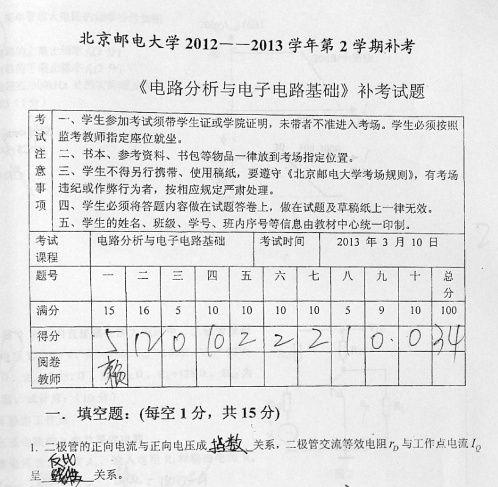 北京邮电大学 2012——2013 学年第 2 学期补考
《电路分析与电子电路基础》补考试题
考试注意事项
一、学生参加考试须带学生证或学院证明，未带者不准进入考场。学生必须按照
监考教师指定座位就坐。
二、书本、参考资料、书包等物品一律放到考场指定位置。
三、学生不得另行携带、使用稿纸，要遵守《北京邮电大学考场规则》，有考场
违纪或作弊行为者，按相应规定严肃处理。
四、学生必须将答题内容做在试题答卷上，做在试题及草稿纸上一律无效。
五、学生的姓名、班级、学号、班内序号等信息由教材中心统一印制。
考试课程 电路分析与电子电路基础 考试时间 2013 年 3 月 10 日
题号 一 二 三 四 五 六 七 八 九 十 总分
满分 15 16 5 10 10 10 10 5 9 10 100
得分 5 12 0 10 2 2 2 1 0 0 34
阅卷教师
一．填空题：(每空 1 分，共 15 分)
1. 二极管的正向电流与正向电压成 指数 关系，二极管交流等效电阻 r_D 与工作点电流 I_Q
呈 反比 关系。